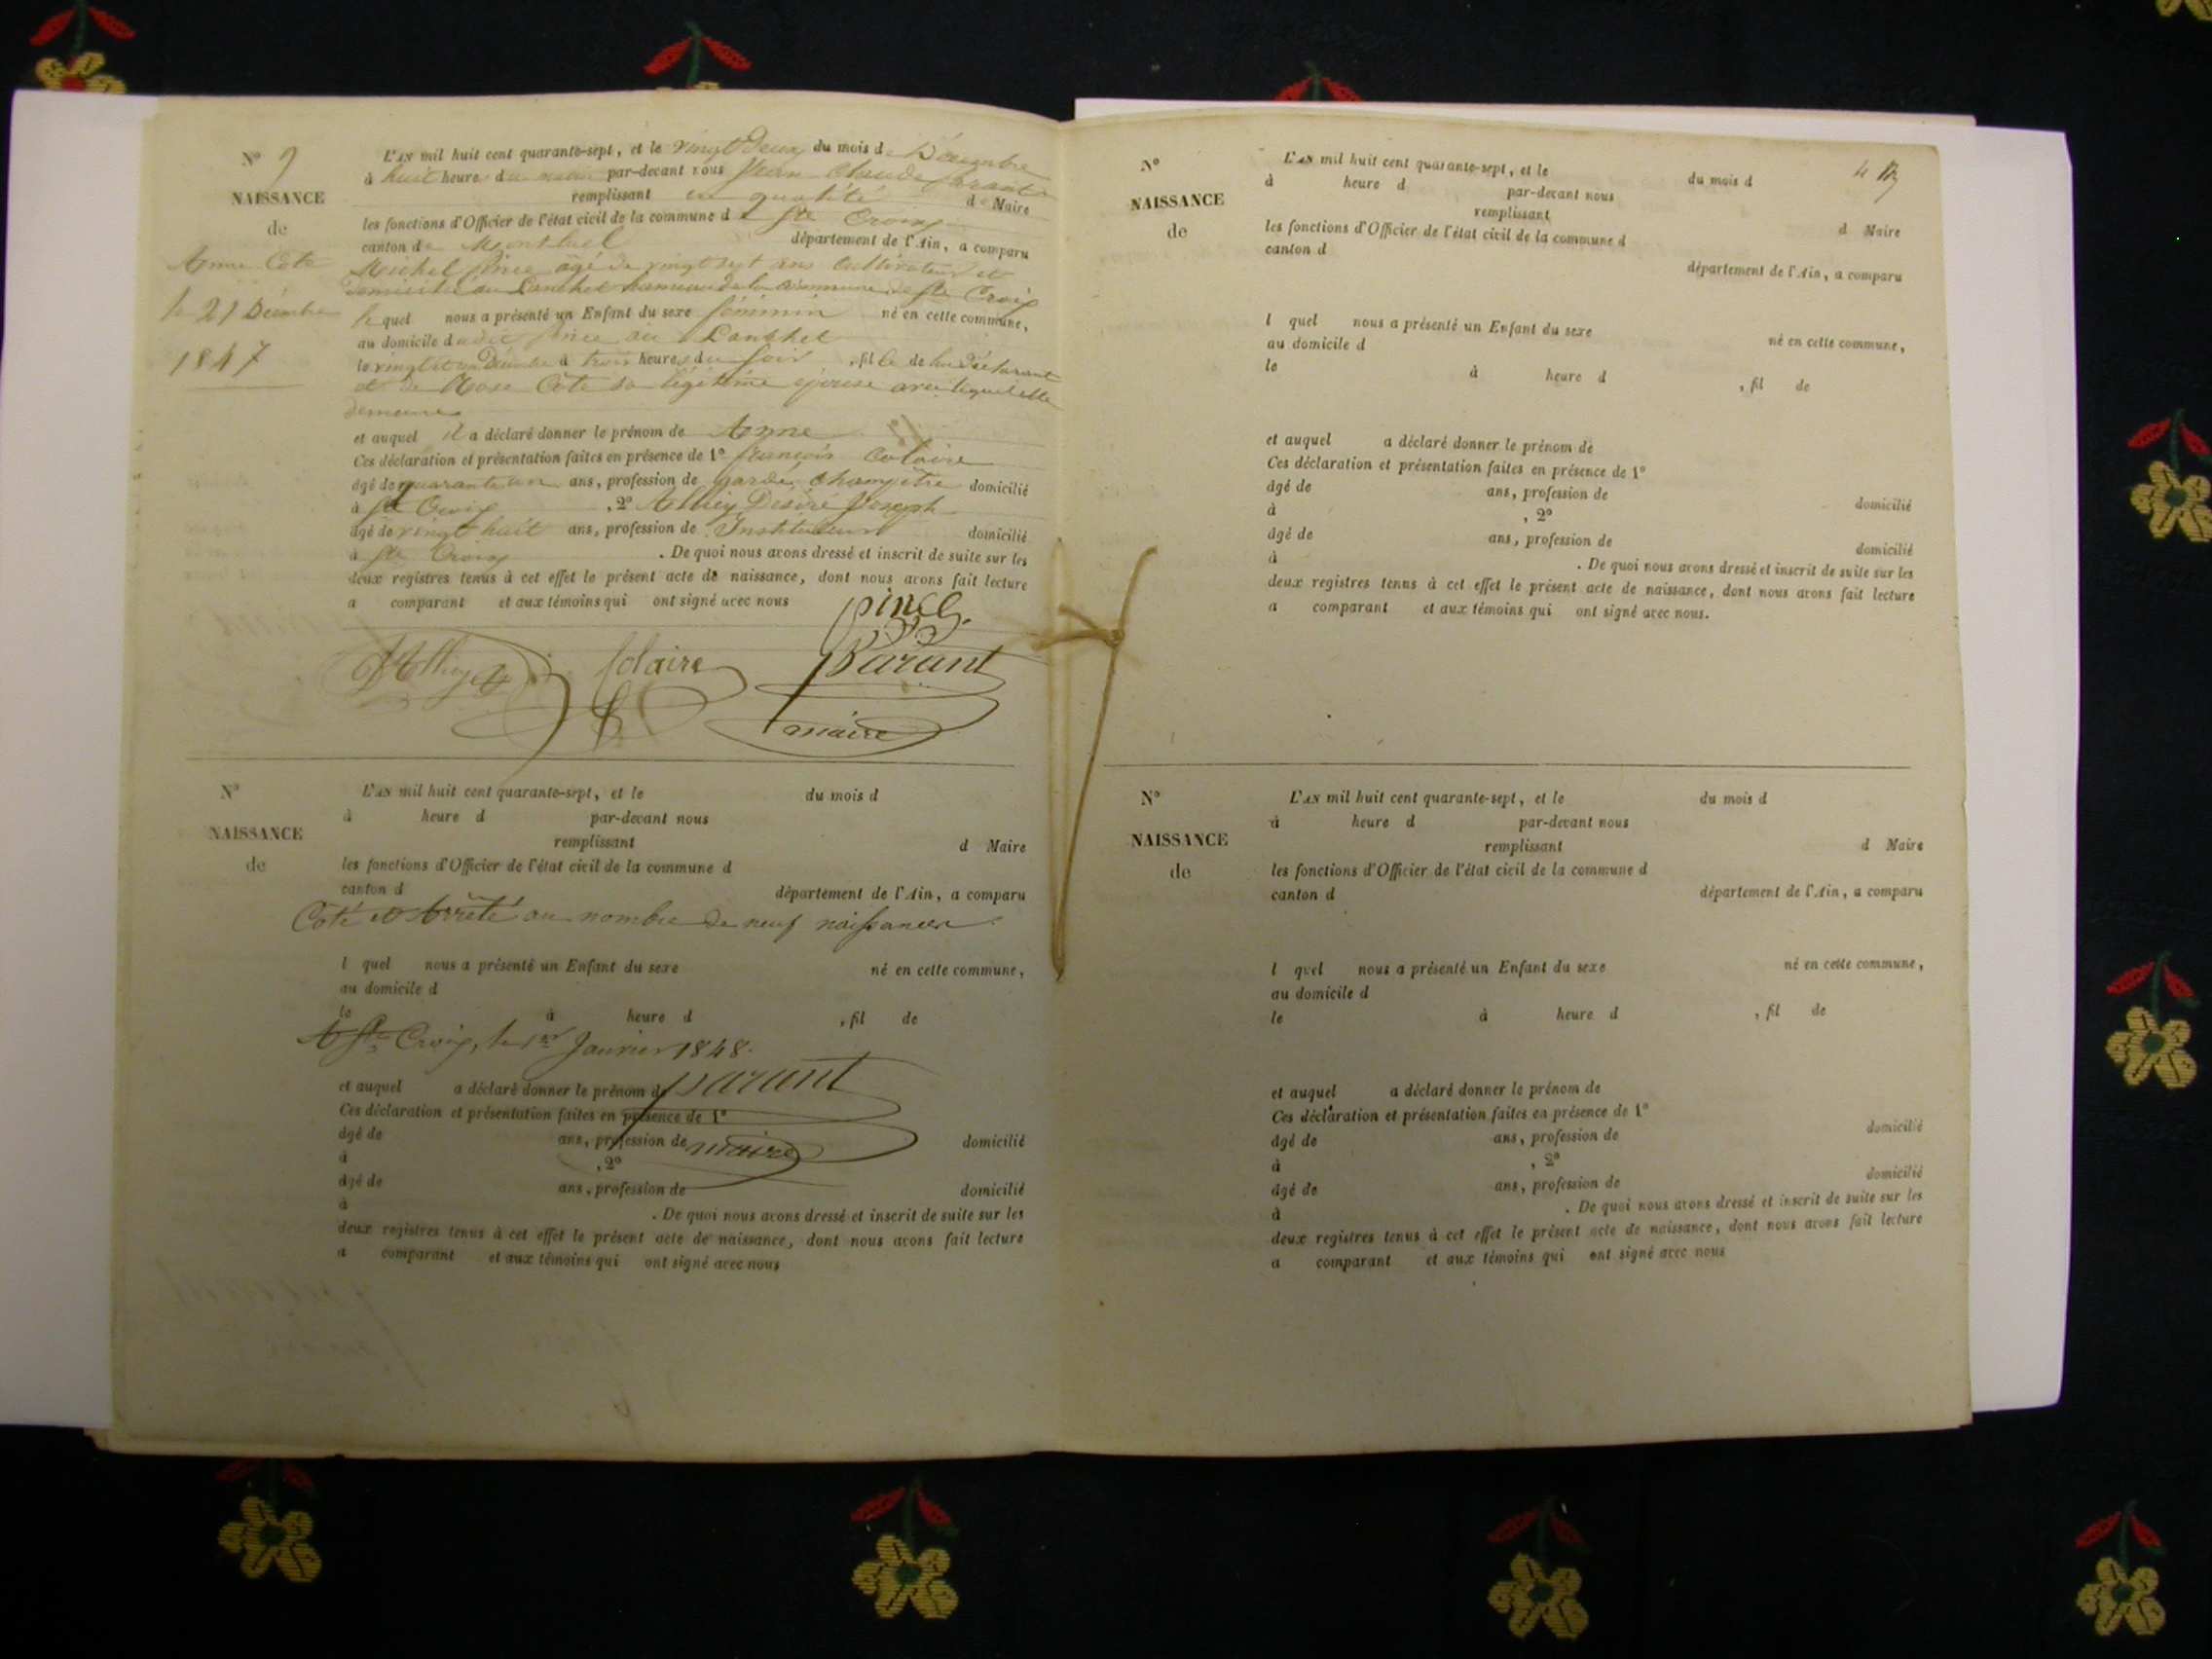 N° 9
NAISSANCE
de
Anne Cote
le 21 Décembre
1847
L'AN mil huit cent quarante-sept, et le vingt deux du mois de Décembre
à huit heures du matin par-devant nous Jean Claude Parant
remplissant en qualité de Maire
les fonctions d'Officier de l'état civil de la commune de Ste Croix
canton de Montluel département de l'Ain, a comparu
Michel Pince âgé de vingt sept ans Cultivateur et
domicilié au hameau de la Commune de Ste Croix
lequel nous a présenté un Enfant du sexe féminin né en cette commune,
au domicile dudit Pince au
le vingt et un Décembre à trois heures du soir, fille de lui déclarant
et de Rose Cote sa légitime épouse avec lequel elle
demeure
et auquel il a déclaré donner le prénom de Anne
Ces déclaration et présentation faites en présence de 1° françois Colaire
âgé de quarante un ans, profession de garde champêtre domicilié
à Ste Croix, 2° Désiré Joseph
âgé de vingt huit ans, profession de Instituteur domicilié
à Ste Croix. De quoi nous avons dressé et inscrit de suite sur les
deux registres tenus à cet effet le présent acte de naissance, dont nous avons fait lecture
a comparant et aux témoins qui ont signé avec nous
pince
Colaire Parant
maire
N°
NAISSANCE
de
L'AN mil huit cent quarante-sept, et le du mois d
à heure d par-devant nous
remplissant d Maire
les fonctions d'Officier de l'état civil de la commune d
canton d département de l'Ain, a comparu
Coté et Arrêté au nombre de neuf naissances
l quel nous a présenté un Enfant du sexe né en cette commune,
au domicile d
le à heure d , fil de
A Ste Croix, le 1er Janvier 1848.
et auquel a déclaré donner le prénom de parant
Ces déclaration et présentation faites en présence de 1°
âgé de ans, profession de maire domicilié
à , 2°
âgé de ans, profession de domicilié
à . De quoi nous avons dressé et inscrit de suite sur les
deux registres tenus à cet effet le présent acte de naissance, dont nous avons fait lecture
a comparant et aux témoins qui ont signé avec nous
4
N°
NAISSANCE
de
L'AN mil huit cent quarante-sept, et le du mois d
à heure d par-devant nous
remplissant d Maire
les fonctions d'Officier de l'état civil de la commune d
canton d département de l'Ain, a comparu
l quel nous a présenté un Enfant du sexe né en cette commune,
au domicile d
le à heure d , fil de
et auquel a déclaré donner le prénom de
Ces déclaration et présentation faites en présence de 1°
âgé de ans, profession de domicilié
à , 2°
âgé de ans, profession de domicilié
à . De quoi nous avons dressé et inscrit de suite sur les
deux registres tenus à cet effet le présent acte de naissance, dont nous avons fait lecture
a comparant et aux témoins qui ont signé avec nous.
N°
NAISSANCE
de
L'AN mil huit cent quarante-sept, et le du mois d
à heure d par-devant nous
remplissant d Maire
les fonctions d'Officier de l'état civil de la commune d
canton d département de l'Ain, a comparu
l quel nous a présenté un Enfant du sexe né en cette commune,
au domicile d
le à heure d , fil de
et auquel a déclaré donner le prénom de
Ces déclaration et présentation faites en présence de 1°
âgé de ans, profession de domicilié
à , 2°
âgé de ans, profession de domicilié
à . De quoi nous avons dressé et inscrit de suite sur les
deux registres tenus à cet effet le présent acte de naissance, dont nous avons fait lecture
a comparant et aux témoins qui ont signé avec nous